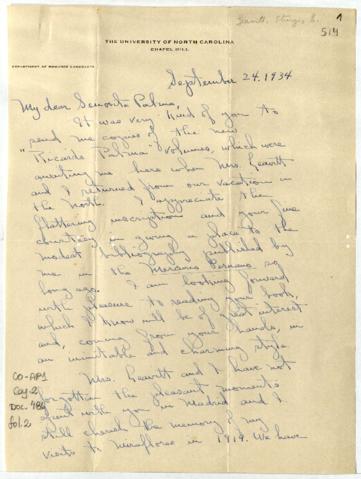 1
514
THE UNIVERSITY OF NORTH CAROLINA
CHAPEL HILL
DEPARTMENT OF ROMANCE LANGUAGES
September 24, 1934
My dear Señorita Palma,
It was very kind of you to
send me copies of the new
"Ricardo Palma" volumes, which were
awaiting me here when Mrs. Leavitt
and I returned from our vacation in
the North. I appreciate the
flattering inscription and your fine
courtesy in giving a place to the
modest bibliography published by
me in the Mercurio Peruano so
long ago. I am looking forward
with pleasure to reading your book,
which I know will be of great interest
and, coming from your hands, in
an inimitable and charming style.
Mrs. Leavitt and I have not
forgotten the pleasant moments
spent with you in Madrid and I
still cherish the memory of my
visits to Miraflores in 1919. We have
CO-AP1
Caj. 2
DOC. 484
fol. 2